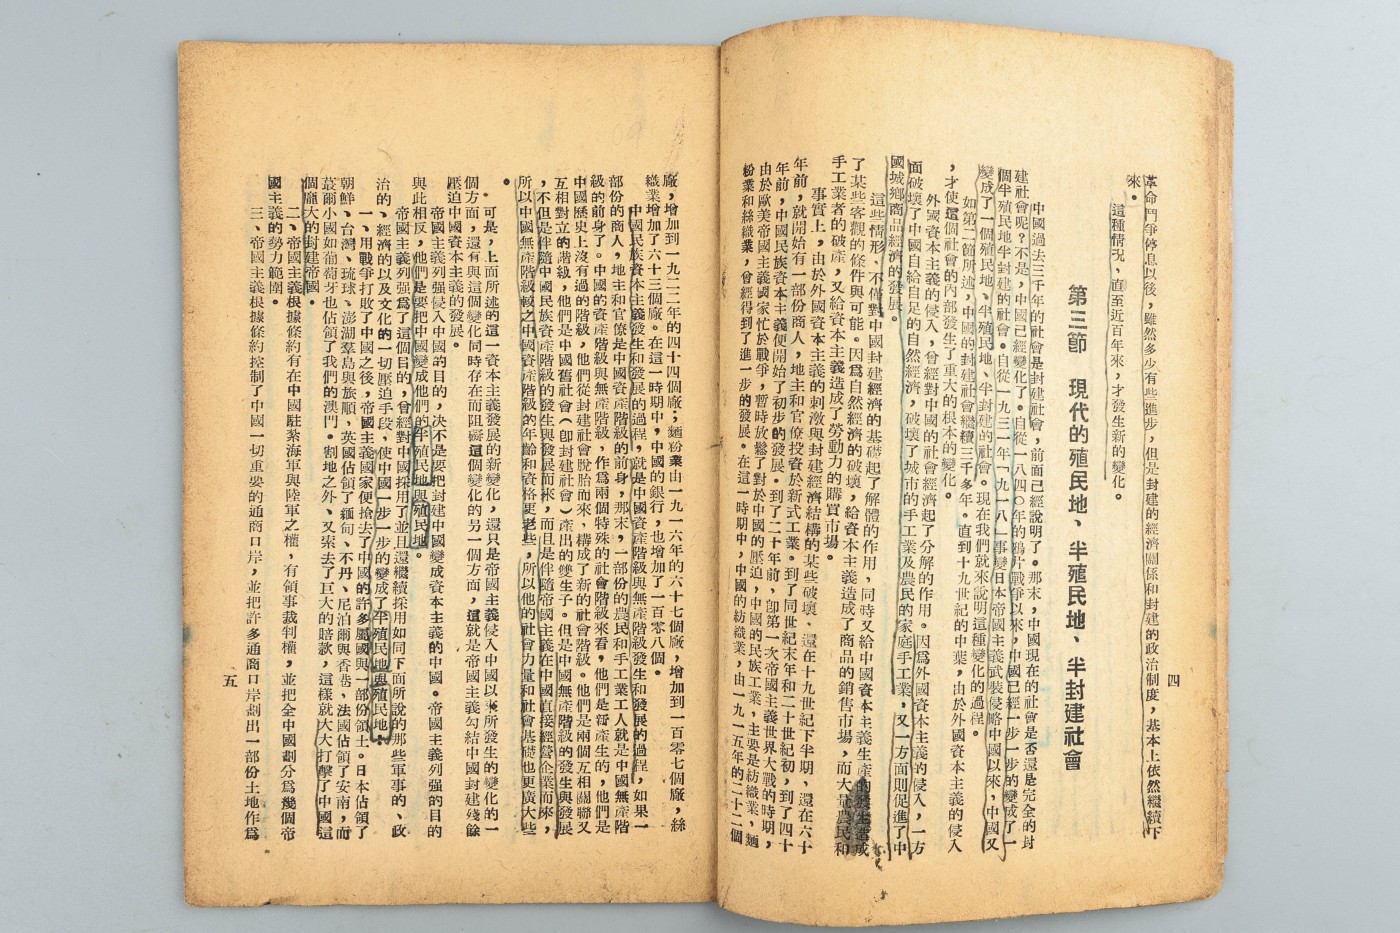 革命鬥爭停息以後，雖然多少有些進步，但是封建的經濟關係和封建的政治制度，基本上依然繼續下
來。
這種情况，直至近百年來，才發生新的變化。
第三節　現代的殖民地、半殖民地、半封建社會
中國過去三千年的社會是封建社會，前面已經說明了。那末，中國現在的社會是否還是完全的封
建社會呢？不是，中國已經變化了。自從一八四〇年的鴉片戰爭以來，中國已經一步一步的變成了一
個半殖民地半封建的社會。自從一九三一年「九一八」事變日本帝國主義武裝侵略中國以來，中國又
變成了一個殖民地、半殖民地、半封建的社會。現在我們就來說明這種變化的過程。
如第二節所述，中國的封建社會繼續三千多年。直到十九世紀的中葉，由於外國資本主義的侵入
，才使這個社會的內部發生了重大的根本的變化。
外國資本主義的侵入，曾經對中國的社會經濟起了分解的作用。因爲外國資本主義的侵入，一方
面破壞了中國自給自足的自然經濟，破壞了城市的手工業及農民的家庭手工業，又一方面則促進了中
國城鄉商品經濟的發展。
這些情形，不僅對中國封建經濟的基礎起了解體的作用，同時又給中國資本主義生產的發生造成
了某些客觀的條件與可能。因爲自然經濟的破壞，給資本主義造成了商品的銷售市場，而大量農民和
手工業者的破產，又給資本主義造成了勞動力的購買市場。
事實上，由於外國資本主義的刺激與封建經濟結構的某些破壞，還在十九世紀下半期，還在六十
年前，就開始有一部份商人，地主和官僚投資於新式工業。到了同世紀末年和二十世紀初，到了四十
年前，中國民族資本主義便開始了初步的發展。到了二十年前，卽第一次帝國主義世界大戰的時期，
由於歐美帝國主義國家忙於戰爭，暫時放鬆了對於中國的壓迫，中國的民族工業，主要是紡織業，麵
粉業和絲織業，曾經得到了進一步的發展。在這一時期中，中國的紡織業，由一九一五年的二十二個
四
廠，增加到一九二二年的四十四個廠；麵粉業由一九一六年的六十七個廠，增加到一百零七個廠，絲
織業增加了六十三個廠。在這一時期中，中國的銀行，也增加了一百零八個。
中國民族資本主義發生和發展的過程，就是中國資產階級與無產階級發生和發展的過程，如果一
部份的商人，地主和官僚是中國資產階級的前身，那末，一部份的農民和手工業工人就是中國無產階
級的前身了。中國的資產階級與無產階級，作爲兩個特殊的社會階級來看，他們是新產生的，他們是
中國歷史上沒有過的階級，他們從封建社會脫胎而來，構成了新的社會階級。他們是兩個互相關聯又
互相對立的階級，他們是中國舊社會（卽封建社會）產出的雙生子。但是中國無產階級的發生與發展
，不但是伴隨中國民族資產階級的發生與發展而來，而且是伴隨帝國主義在中國直接經營企業而來，
所以中國無產階級較之中國資產階級的年齡和資格更老些，所以他的社會力量和社會基礎也更廣大些
。
可是，上面所述的這一資本主義發展的新變化，還只是帝國主義侵入中國以來所發生的變化的一
個方面，還有與這個變化同時存在而阻礙這個變化的另一個方面，這就是帝國主義勾結中國封建殘餘
壓迫中國資本主義的發展。
帝國主義列強侵入中國的目的，决不是要把封建中國變成資本主義的中國。帝國主義列强的目的
與此相反，他們是要把中國變成他們的半殖民地與殖民地。
帝國主義列强爲了這個目的，曾經對中國採用了並且還繼續採用如同下面所說的那些軍事的、政
治的、經濟的以及文化的一切壓迫手段，使中國一步一步的變成了半殖民地與殖民地：
一、用戰爭打敗了中國之後，帝國主義國家便搶去了中國的許多屬國與一部份領土。日本佔領了
朝鮮、台灣、琉球、澎湖羣島與旅順，英國佔領了緬甸、不丹、尼泊爾與香巷，法國佔領了安南，而
蕞爾小國如葡萄牙也佔領了我們的澳門。割地之外、又索去了巨大的賠款，這樣就大大打擊了中國這
個龐大的封建帝國。
二、帝國主義根據條約有在中國駐紮海軍與陸軍之權，有領事裁判權，並把全中國劃分爲幾個帝
國主義的勢力範圍。
三、帝國主義根據條約控制了中國一切重要的通商口岸，並把許多通商口岸劃出一部份土地作爲
五